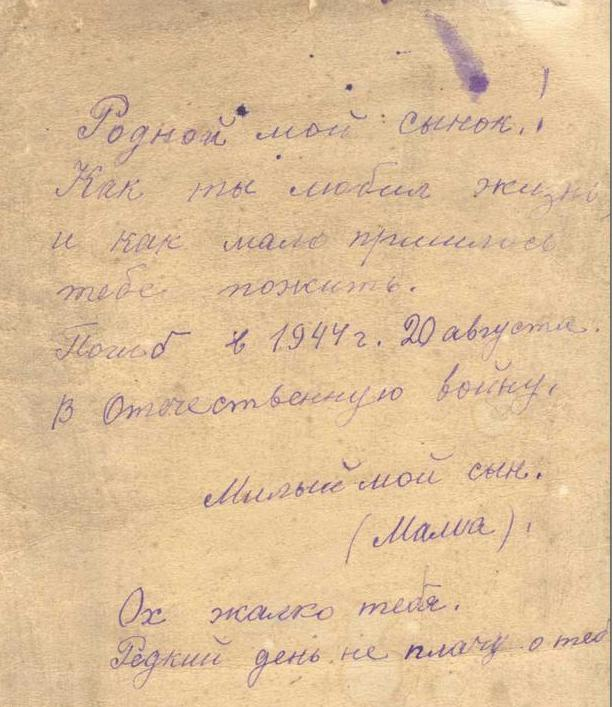 Родной мой сынок!
Как ты любил жизнь
и как мало пришлось
тебе пожить.
Погиб в 1944 г. 20 августа.
В Отечественную войну.
Милый мой сын.
(Мама).
Ох жалко тебя.
Редкий день не плачу о теб